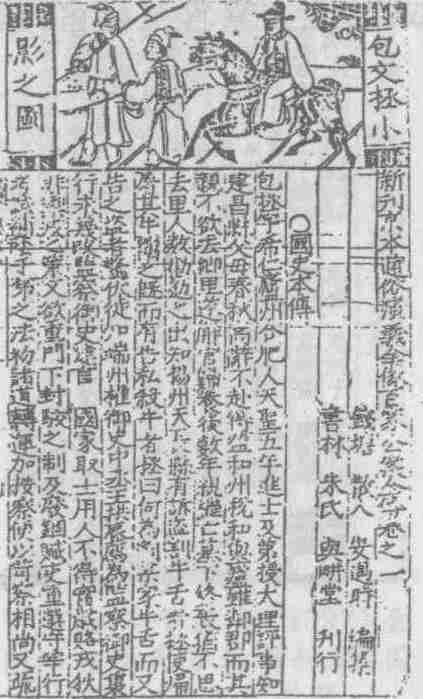 包文拯小
影之圖
新刊京本通俗演義全像百家公案全傳卷之一
錢塘 散人 安遇時 編集
書林 朱氏 與畊堂 刊行
○國史本傳
包拯字希仁廬州合肥人天聖五年進士及第授大理評事知
建昌縣父母春秋高辭不赴得監和州稅和與廬雖鄰郡而其
親不欲去鄉里遂解官歸養後數年親繼亡終喪猶不
去里人數勸勉之出知揚州天長縣有訴盜割牛舌者拯使歸
屠其牛鬻之既而有告私殺牛者拯曰何為割某家牛舌而又
告之盜者驚伏徙知端州權御史中丞王拱辰薦為監察御史裏
行未幾改監察御史建言 國家取士用人不得實歲賂戎狄
非禦戎之策又欲重門下封駁之制及廢錮贓吏重選守宰行
考試子弟之法 諸道轉運加按察使以苛察相尚又疏